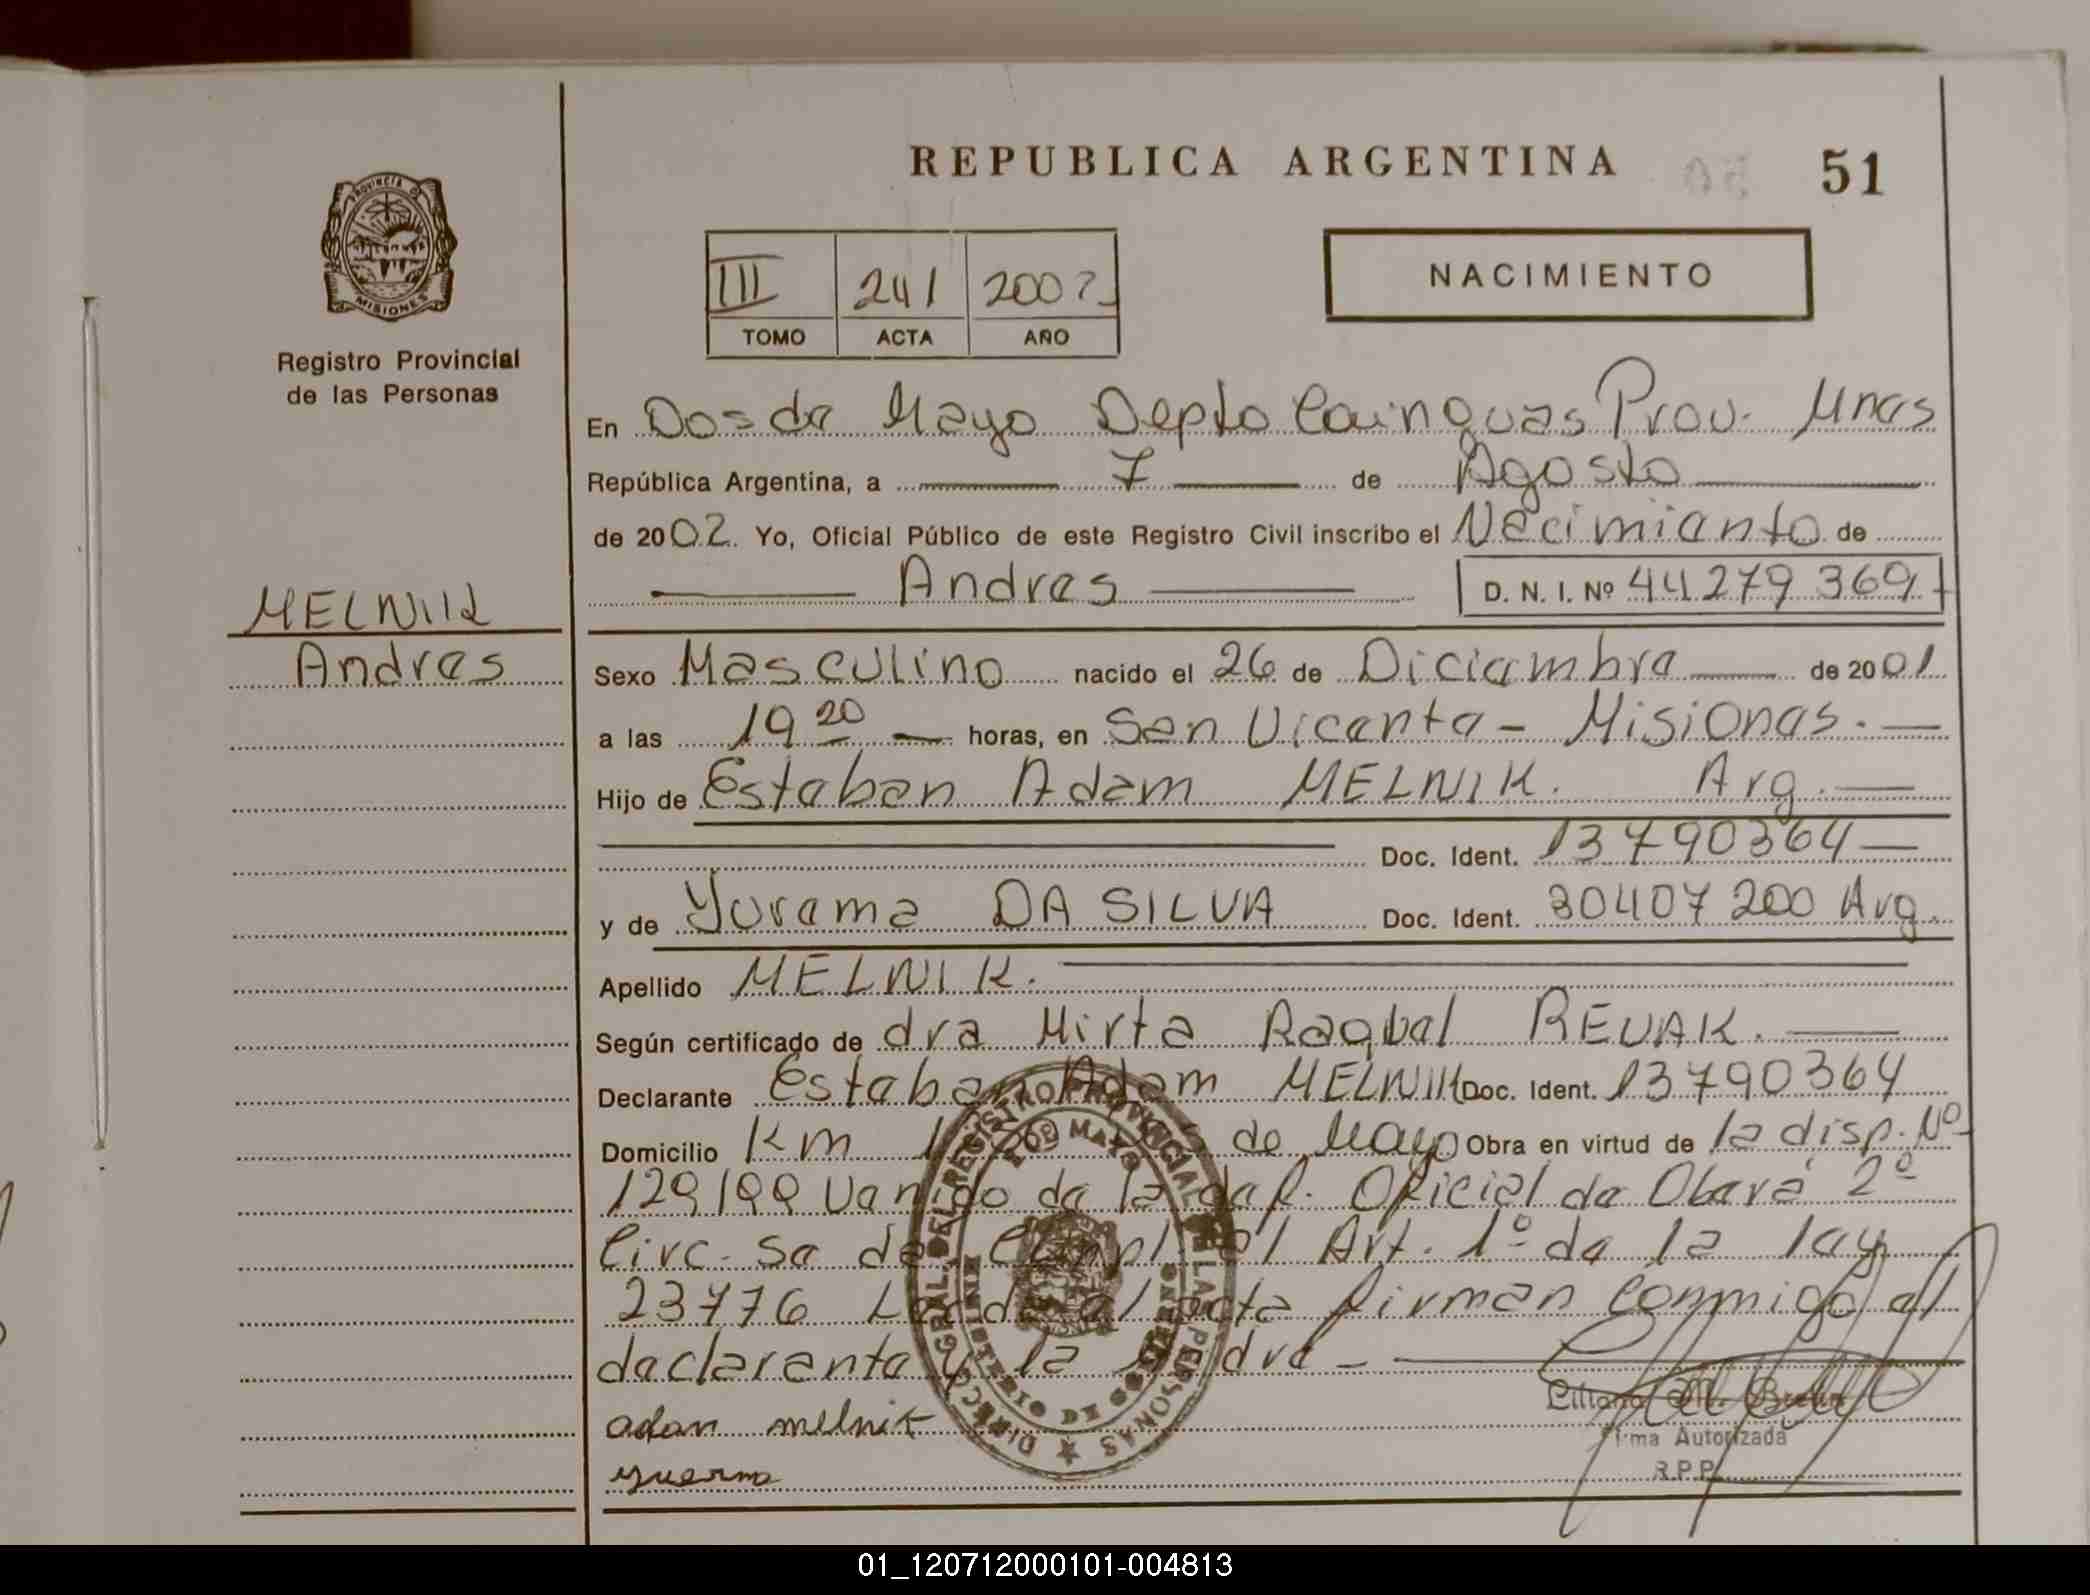 REPUBLICA ARGENTINA
51
PROVINCIA DE
MISIONES
Registro Provincial
de las Personas
III 241 2002
TOMO ACTA AÑO
NACIMIENTO
En Dos de Mayo Depto Cainguas Prov. Mnes
República Argentina, a 7 de Agosto
de 2002. Yo, Oficial Público de este Registro Civil inscribo el Nacimiento de
Andres D. N. I. Nº 44279369
MELNIK
Andres
Sexo Masculino nacido el 26 de Diciembre de 2001
a las 19 20 horas, en San Vicente - Misiones.
Hijo de Esteban Adam MELNIK. Arg.
Doc. Ident. 13790364
y de Yurema DA SILVA Doc. Ident. 30407200 Arg.
Apellido MELNIK.
Según certificado de dra Mirta Raquel REVAK.
Declarante Esteban Adam MELNIK Doc. Ident. 13790364
Domicilio Km de Mayo Obra en virtud de la disp. Nº
129/99 de la def. Oficial de Oberá 2º
Circ. Se da el Art. 1º de la ley
23776 acta firman Conmigo el
declarante y la Madre -
adan melnik
Firma Autorizada
R.P.P.
01_120712000101-004813